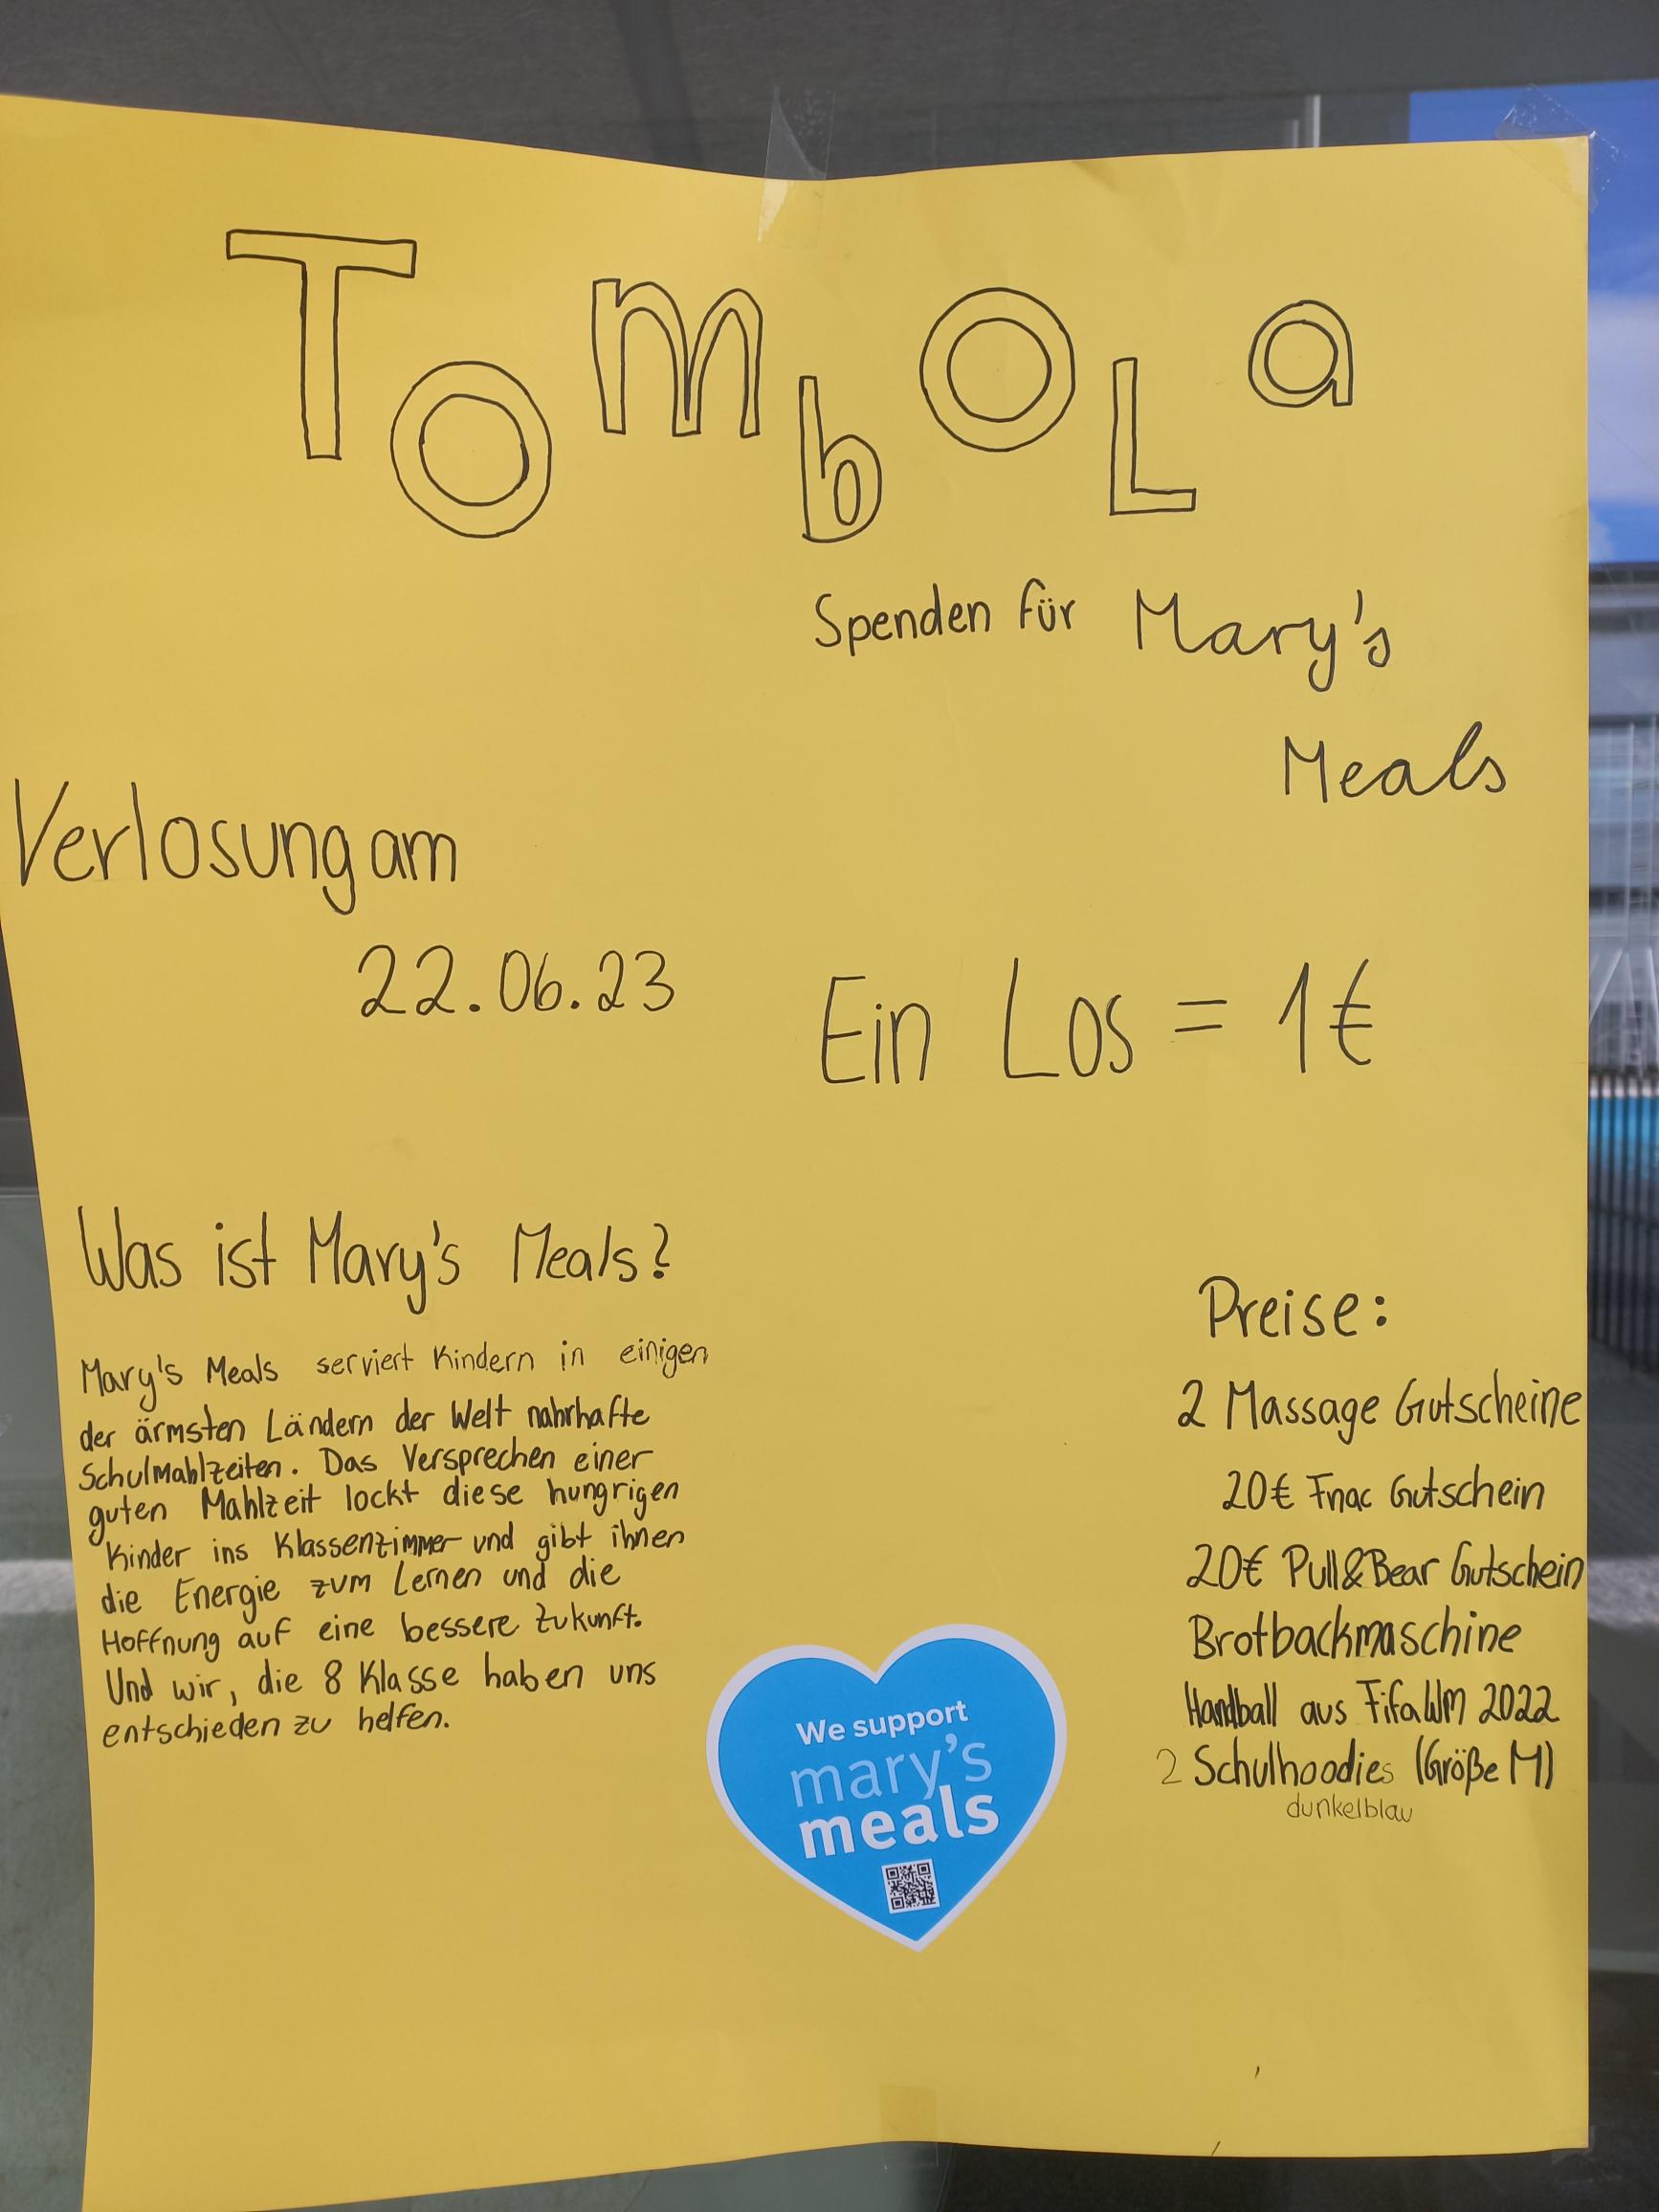 Tombola
Spenden für Mary's
Meals
Verlosung am
22.06.23
Ein Los = 1€
Was ist Mary's Meals?
Mary's Meals serviert Kindern in einigen
der ärmsten Ländern der Welt nahrhafte
Schulmahlzeiten. Das Versprechen einer
guten Mahlzeit lockt diese hungrigen
Kinder ins Klassenzimmer und gibt ihnen
die Energie zum Lernen und die
Hoffnung auf eine bessere Zukunft.
Und wir, die 8 Klasse haben uns
entschieden zu helfen.
Preise:
2 Massage Gutscheine
20€ Fnac Gutschein
20€ Pull&Bear Gutschein
Brotbackmaschine
Handball aus Fifa WM 2022
2 Schulhoodies (Größe M)
dunkelblau
We support
mary's
meals